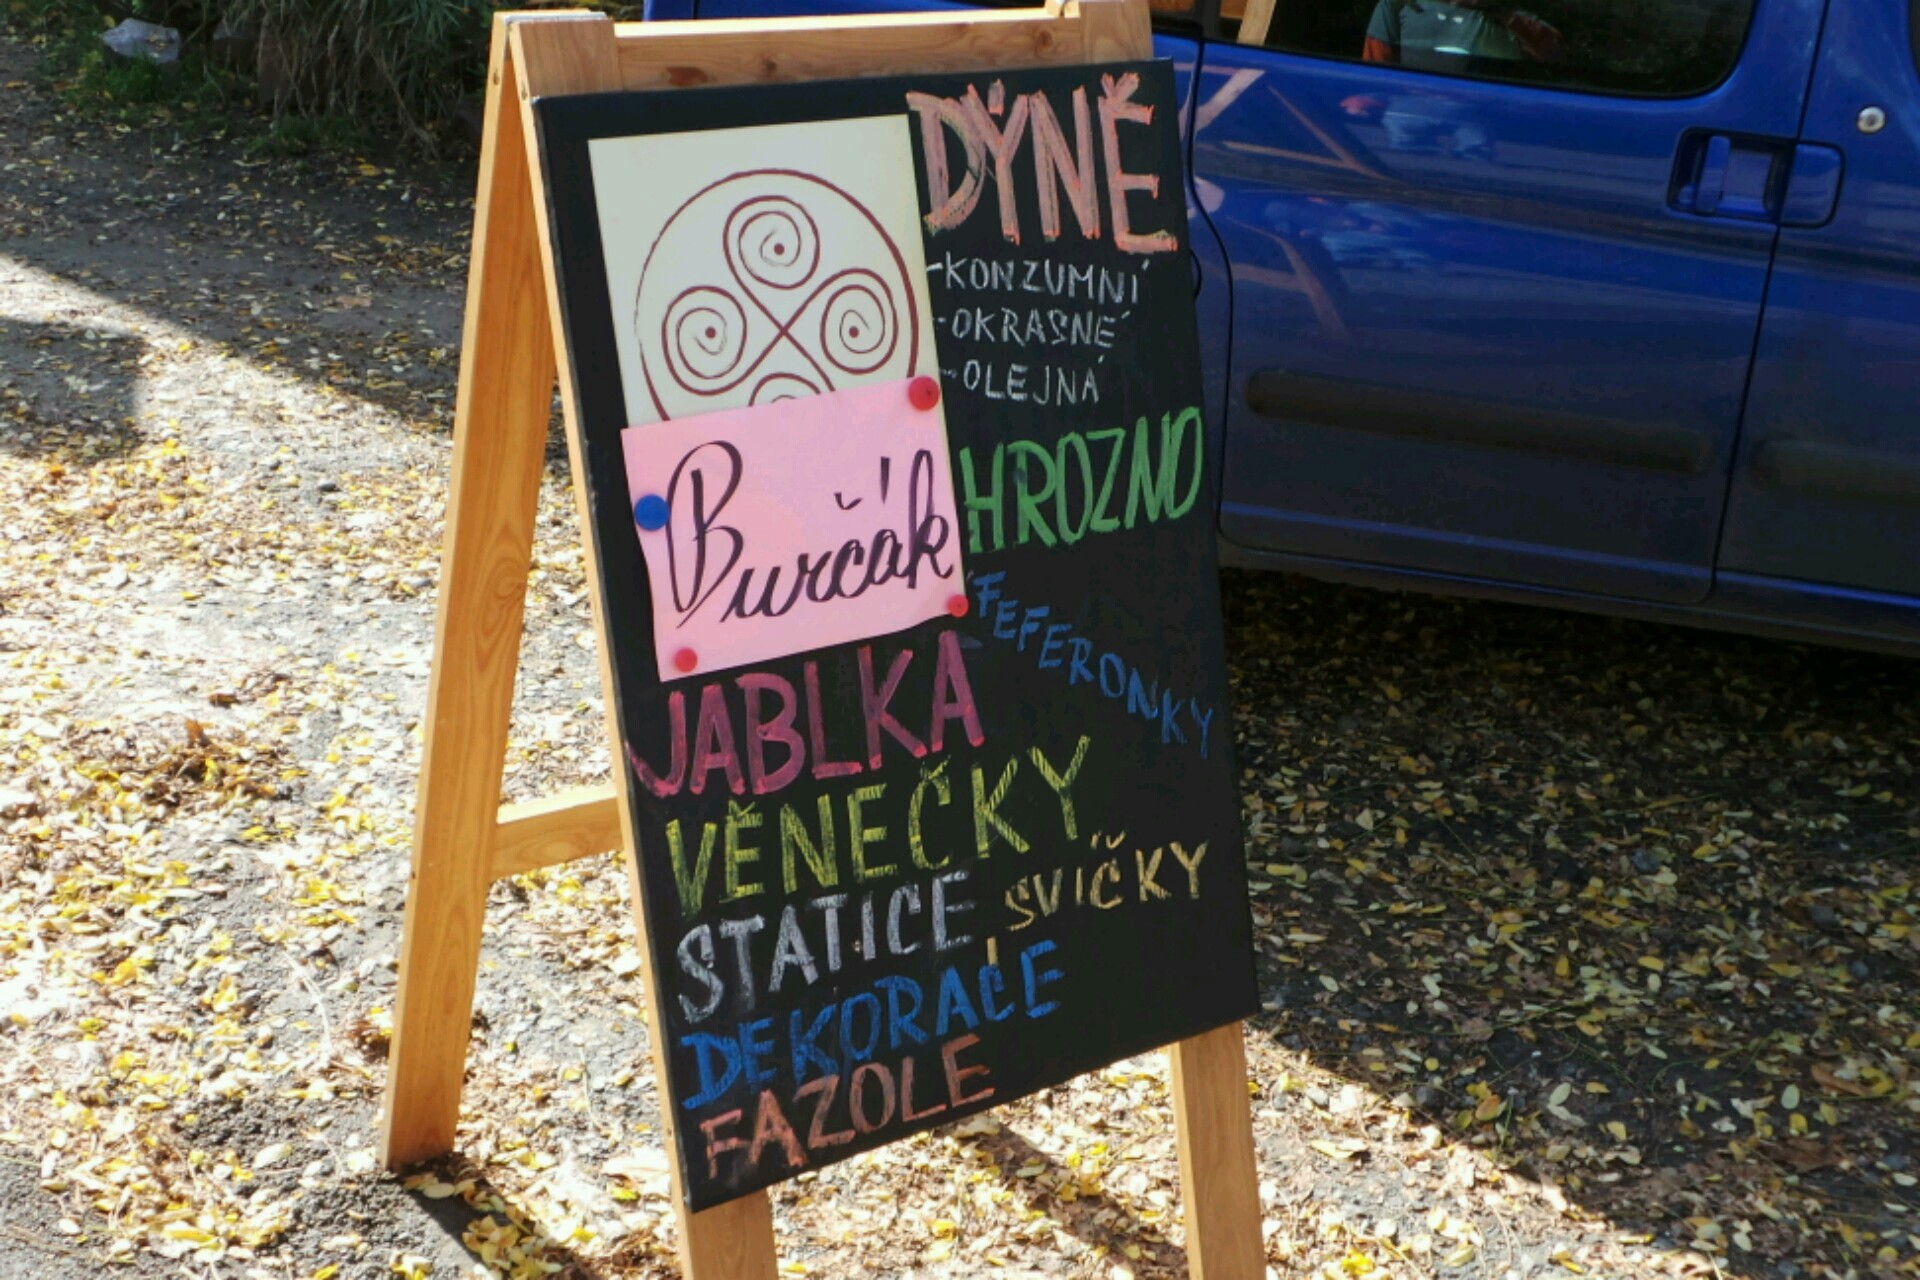 DÝNĚ
-KONZUMNÍ
-OKRASNÉ
-OLEJNÁ
Burčák
HROZNO
FEFERONKY
JABLKA
VĚNEČKY
STATICE SVÍČKY
DEKORACE
FAZOLE